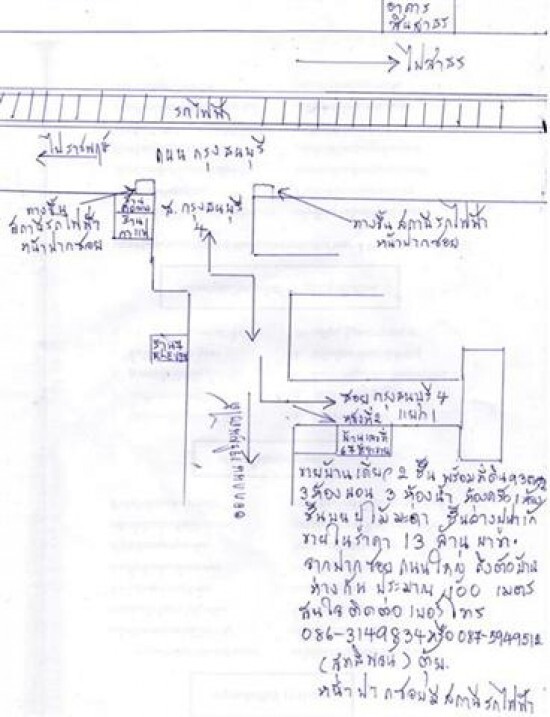 อาคาร
สินสาธร
ไปสาธร
รถไฟฟ้า
ไปราชพฤกษ์
ถนน กรุงธนบุรี
ทางขึ้น
สถานีรถไฟฟ้า
หน้าปากซอย
ร้าน
ร้าน
กาแฟ
ซ. กรุงธนบุรี
4
ทางขึ้น สถานีรถไฟฟ้า
หน้าปากซอย
ร้าน 7
ซอย กรุงธนบุรี 4
แยก 1
หลังที่ 2
บ้านเลขที่
ขายบ้านเดี่ยว 2 ชั้น พร้อมที่ดิน
3 ห้องนอน 3 ห้องน้ำ ห้องครัว 1 ห้อง
ชั้นบนปูไม้มะค่า ชั้นล่างปูปาเก้
ขายในราคา 13 ล้าน บาท.
จากปากซอย ถนนใหญ่ ถึงตัวบ้าน
ห่างกัน ประมาณ 100 เมตร
สนใจติดต่อ เบอร์โทร
086-3149834 หรือ 087-5949512
หน้าปากซอยมีสถานีรถไฟฟ้า